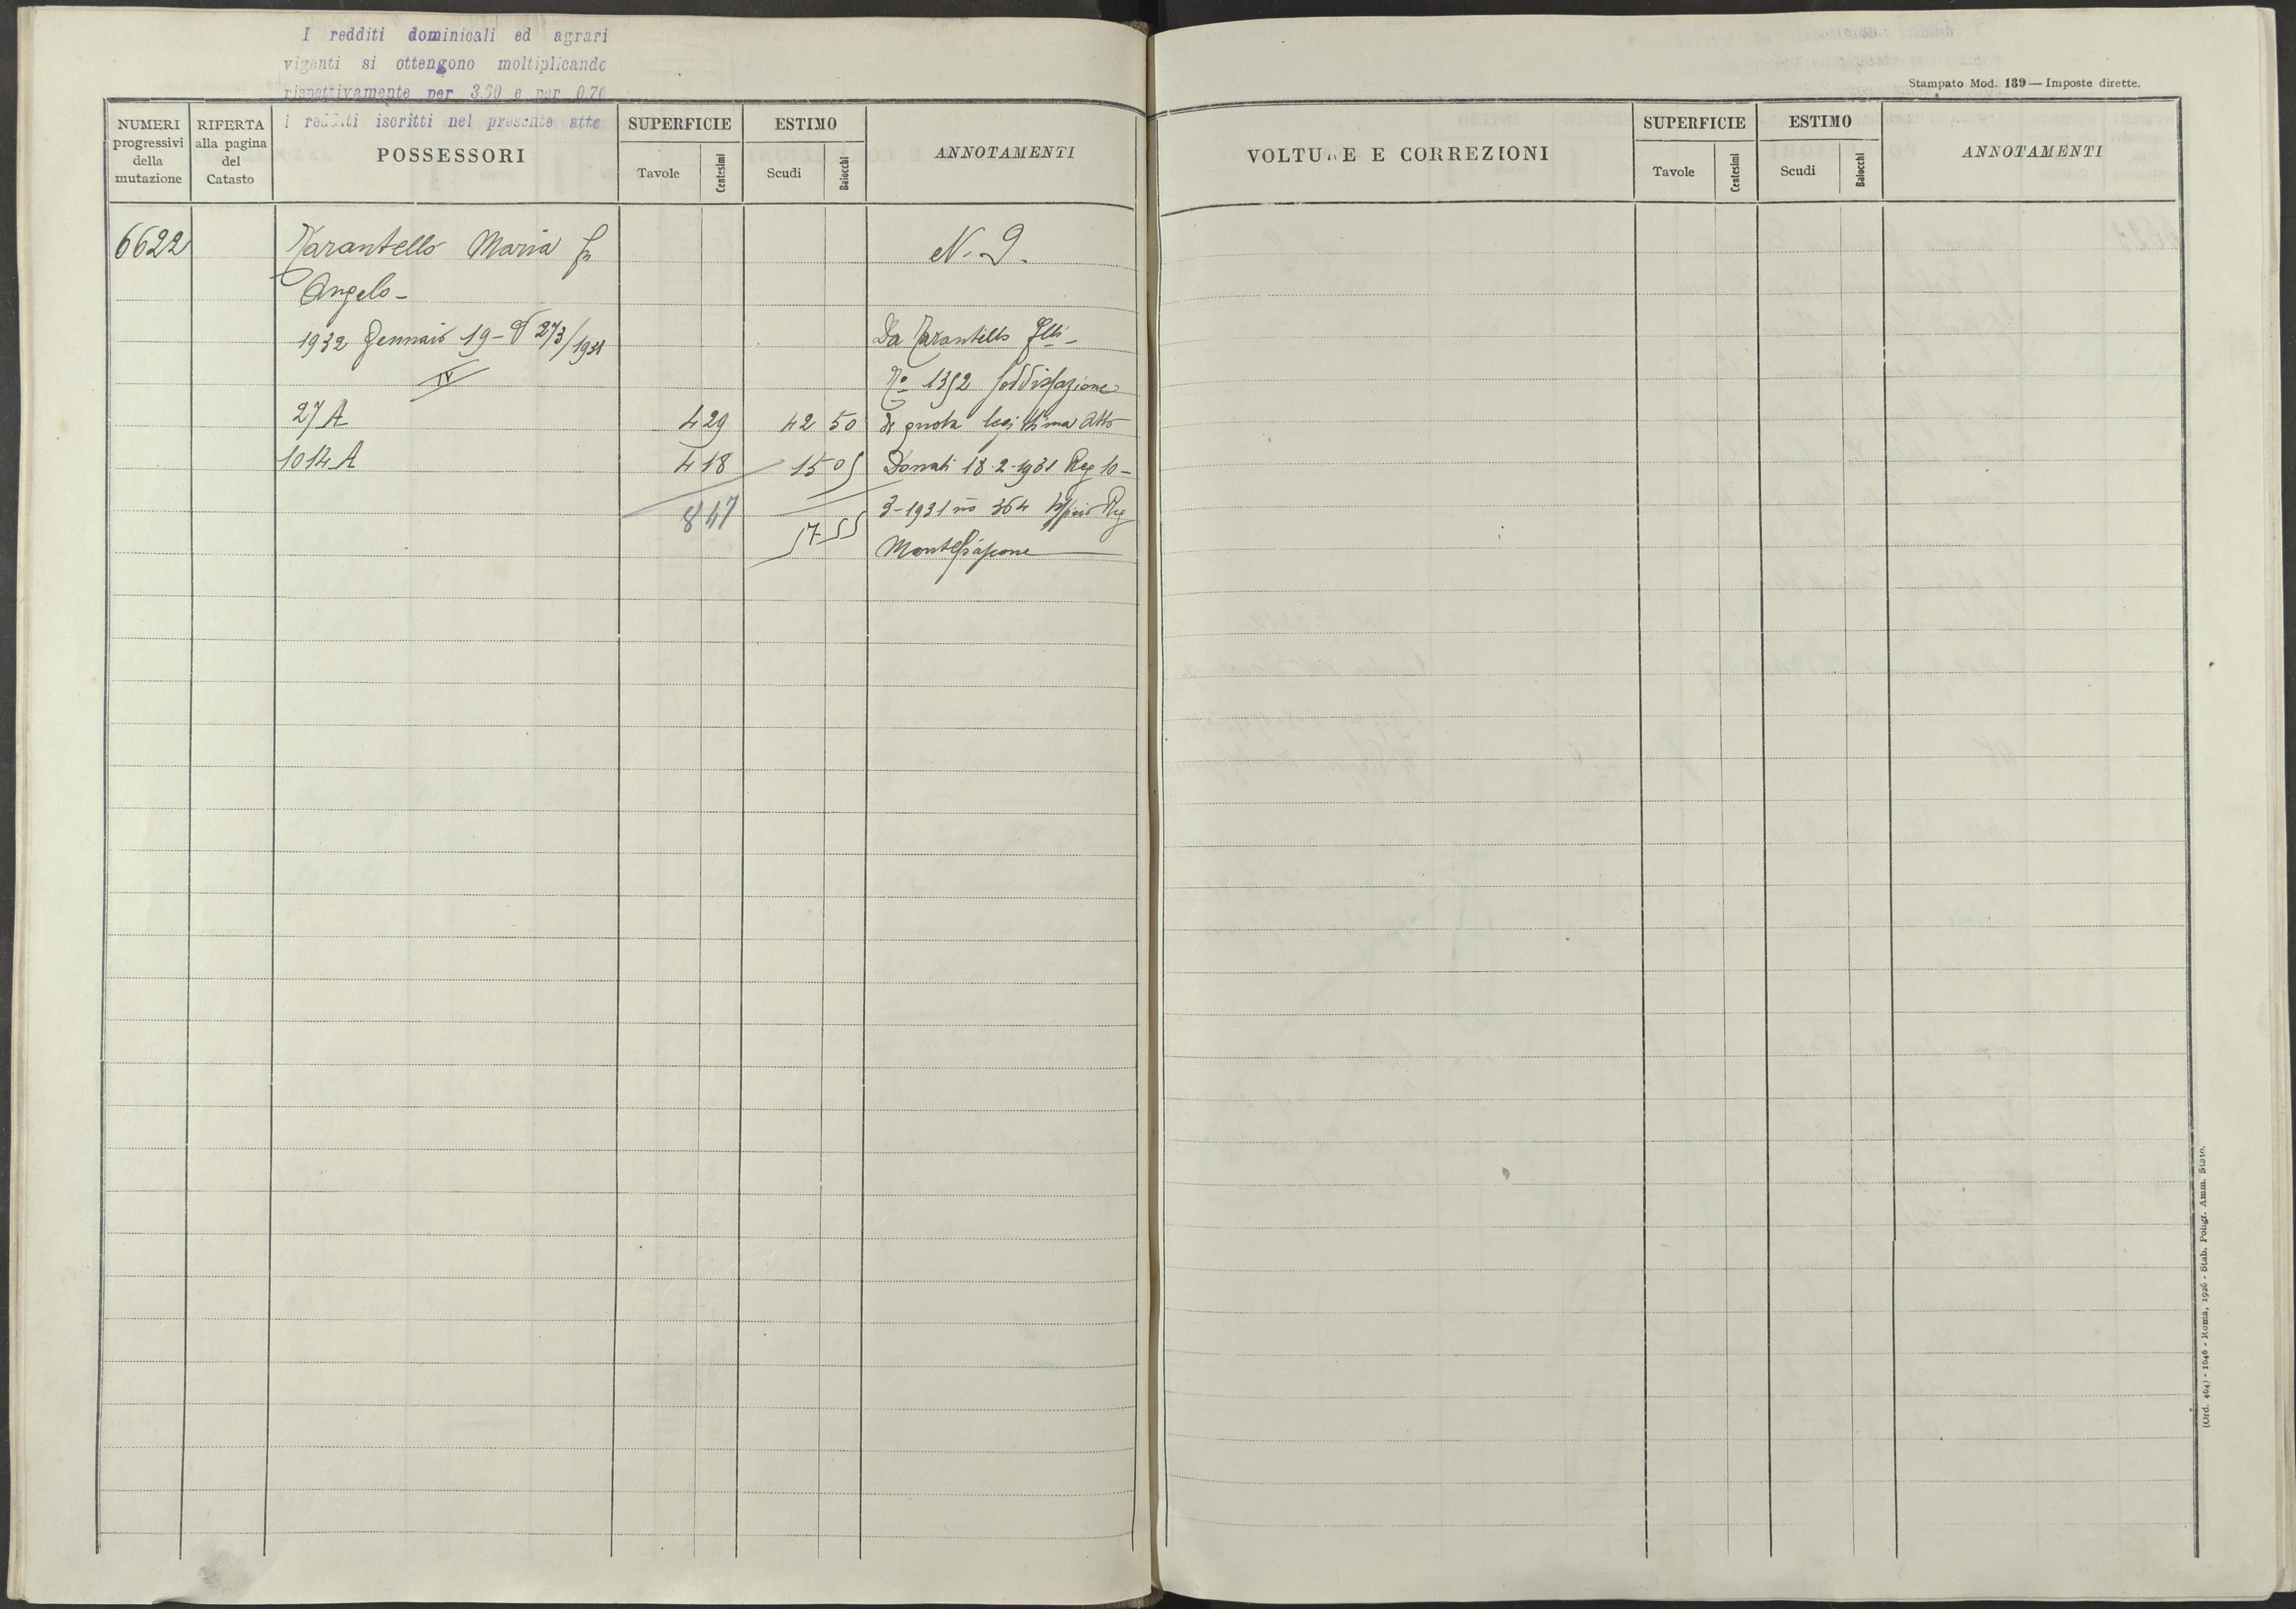 I redditi dominicali ed agrari
vigenti si ottengono moltiplicando
rispettivamente per 3.30 e per 0.70
i redditi iscritti nel presente atto
Stampato Mod. 139 — Imposte dirette.
NUMERI progressivi della mutazione
RIFERTA alla pagina del Catasto
POSSESSORI
SUPERFICIE
Tavole
Centesimi
ESTIMO
Scudi
Baiocchi
ANNOTAMENTI
VOLTURE E CORREZIONI
SUPERFICIE
Tavole
Centesimi
ESTIMO
Scudi
Baiocchi
ANNOTAMENTI
6622 Tarantello Maria fu N. 9.
Angelo -
1932 Gennaio 19 - 273/1931 Da Tarantello Flli -
IV No 1352 soddisfazione
27 A 4 29 42 50 di quota legittima Atto
1014 A 4 18 15 05 Donati 18-2-1931 Reg 10-
8 47 57-55 3-1931 no 364 Reg
Montefiascone
(Ord. 464) - 1646 - Roma, 1926 - Stab. Poligr. Amm. Stato.